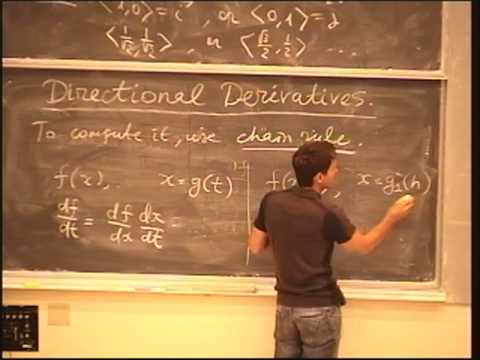 ⟨1,0⟩ = i, or ⟨0,1⟩ = j
⟨1/√2, 1/√2⟩, or ⟨√3/2, 1/2⟩ ...
Directional Derivatives.
To compute it, use chain rule.
f(x), x = g(t)
df/dt = df/dx dx/dt =
f( , x = g₁(h)